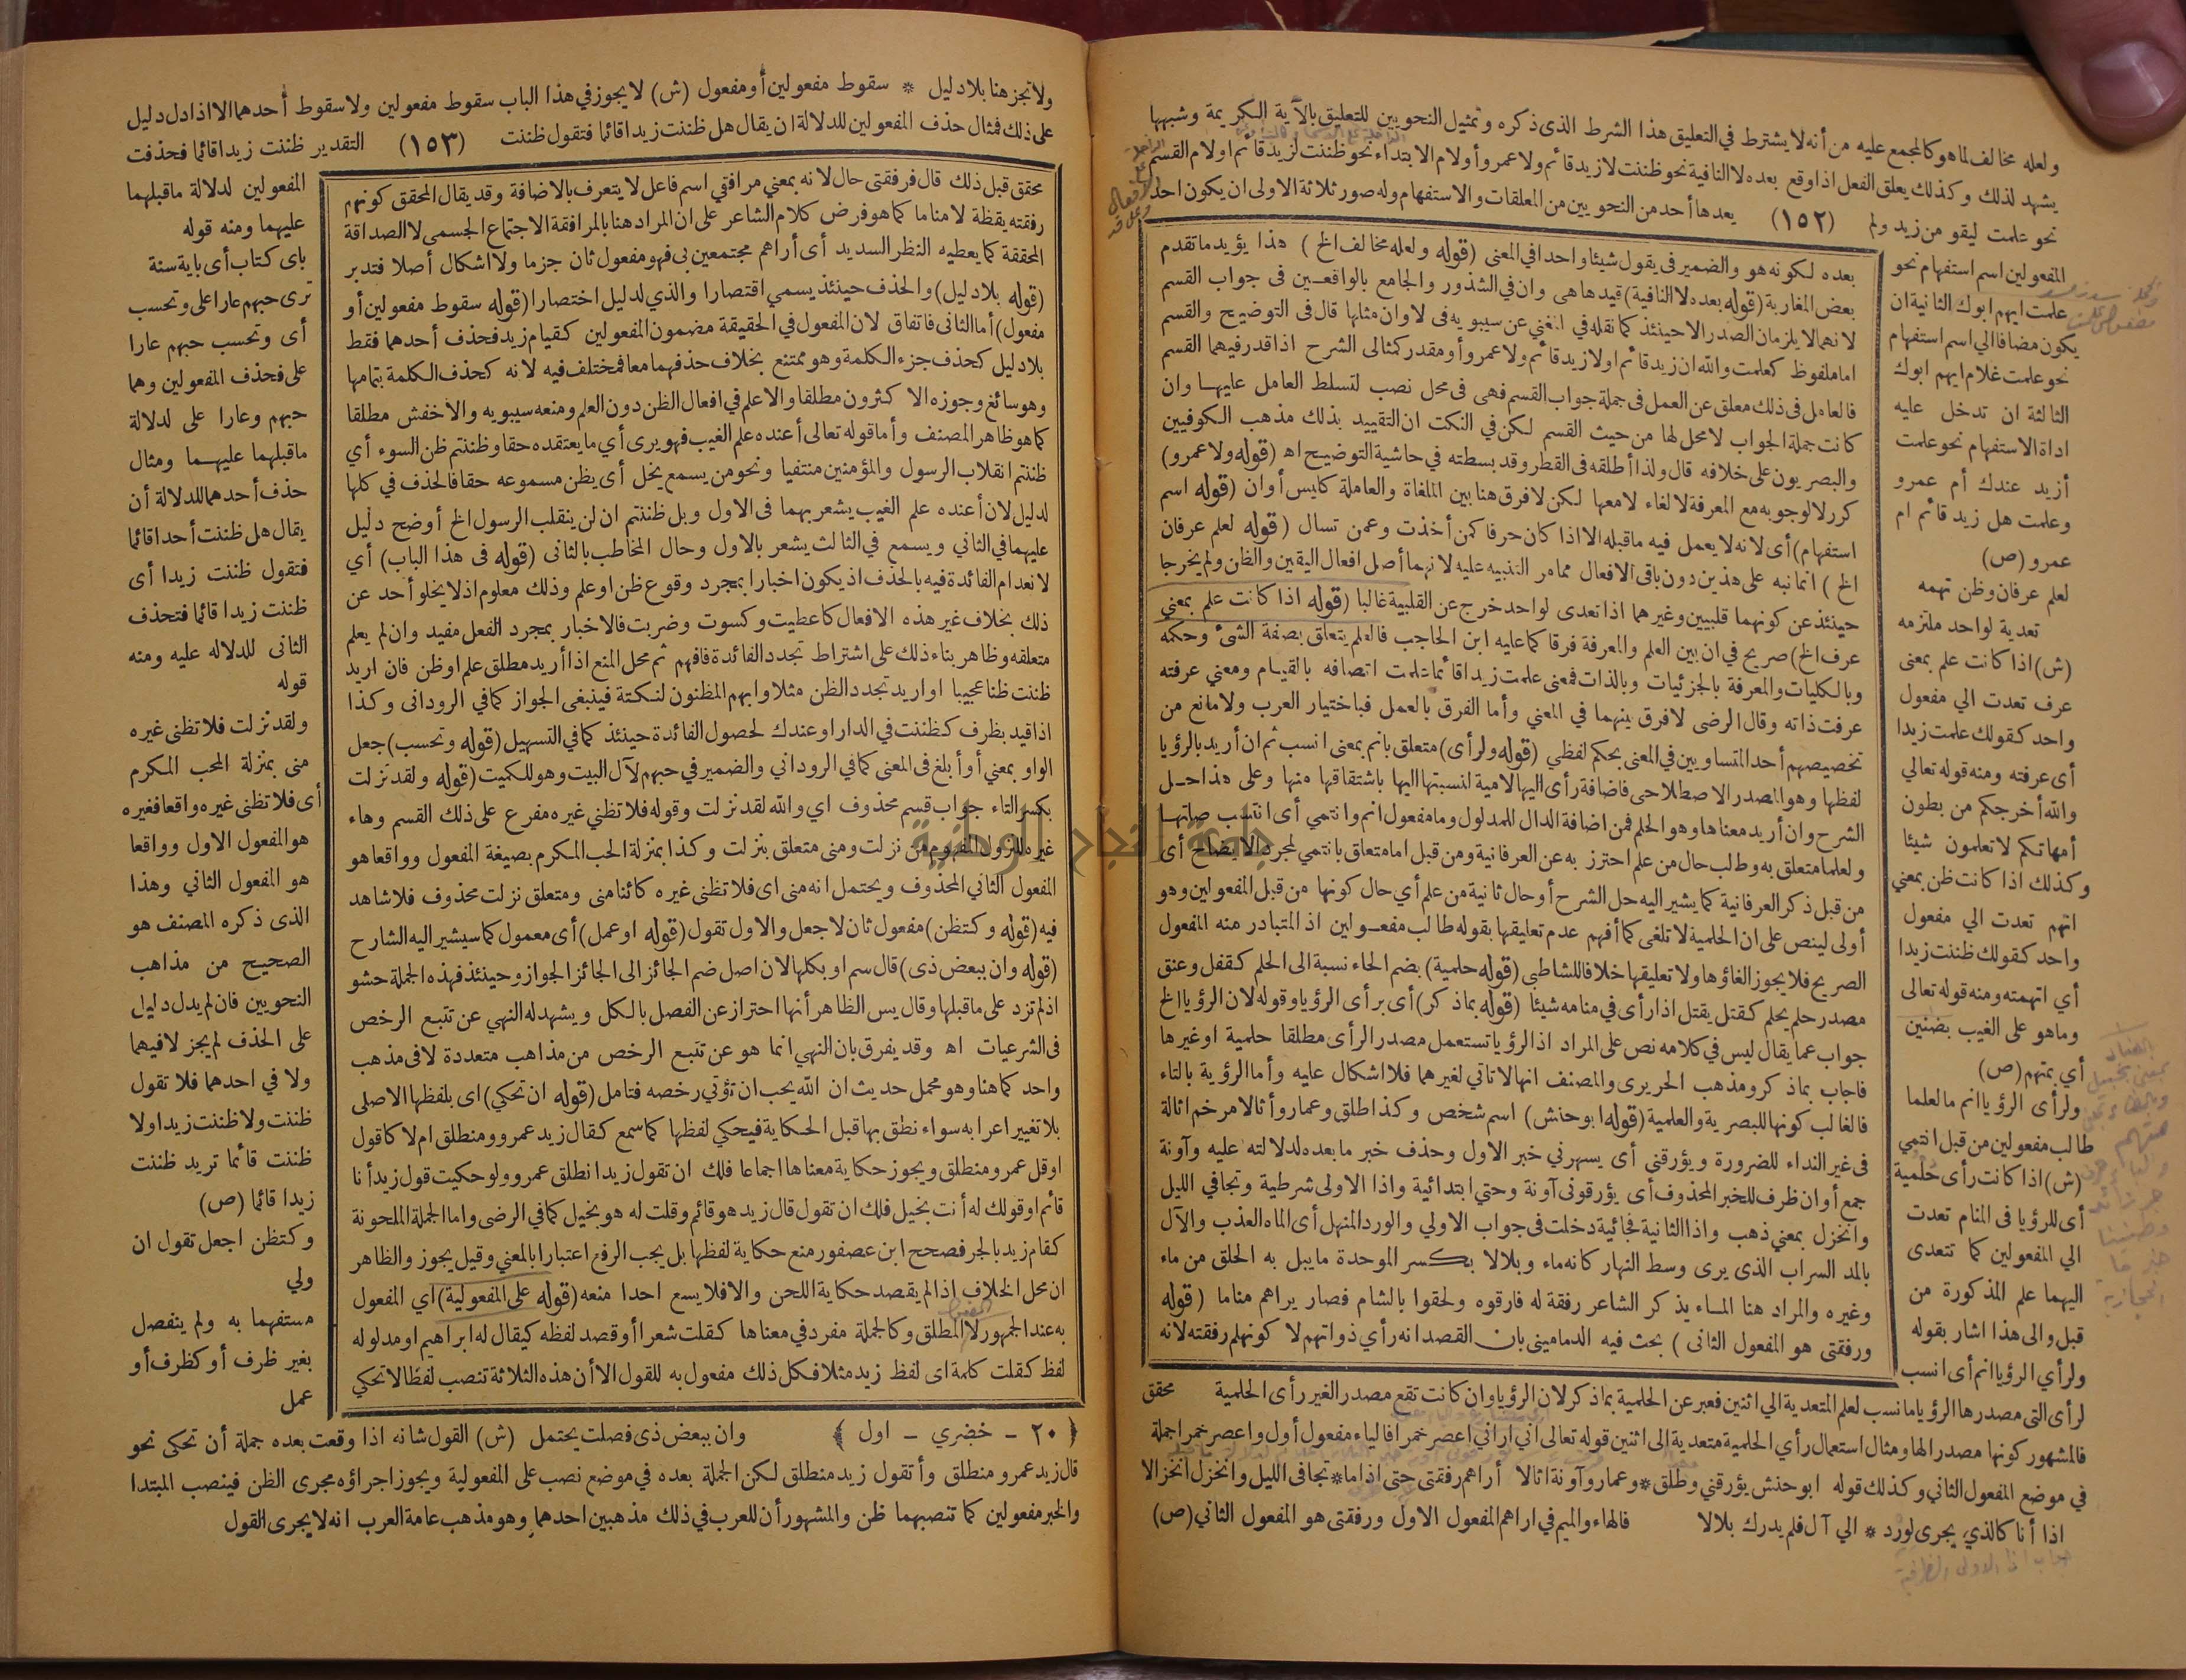 ولعله مخالف لما هو كالمجمع عليه من أنه لا يشترط في التعليق هذا الشرط الذي ذكره وتمثيل النحويين للتعليق بالآية الكريمة وشبهها
يشهد لذلك وكذلك يعلق الفعل اذا وقع بعده لا النافية نحو ظننت لا زيد قائم ولا عمرو أو لام الابتداء نحو ظننت لزيد قائم أو لام القسم
نحو علمت ليقومن زيد ولم (١٥٢) يعدها أحد من النحويين من المعلقات والاستفهام وله صور ثلاثة الاولى ان يكون احد
المفعولين اسم استفهام نحو
علمت ايهم ابوك الثانية ان
يكون مضافا الي اسم استفهام
نحو علمت غلام ايهم ابوك
الثالثة ان تدخل عليه
اداة الاستفهام نحو علمت
أزيد عندك أم عمرو
وعلمت هل زيد قائم ام
عمرو (ص)
لعلم عرفان وظن تهمه
تعدية لواحد ملتزمه
(ش) اذا كانت علم بمعنى
عرف تعدت الي مفعول
واحد كقولك علمت زيدا
أى عرفته ومنه قوله تعالي
والله أخرجكم من بطون
أمهاتكم لا تعلمون شيئا
وكذلك اذا كانت ظن بمعني
اتهم تعدت الي مفعول
واحد كقولك ظننت زيدا
أي اتهمته ومنه قوله تعالى
وما هو على الغيب بضنين
أي بمتهم (ص)
ولرأى الرؤيا انم ما لعلما
طالب مفعولين من قبل انتمي
(ش) اذا كانت رأى حلمية
أى للرؤيا فى المنام تعدت
الي المفعولين كما تتعدى
اليهما علم المذكورة من
قبل والى هذا اشار بقوله
ولرأي الرؤيا انم أى انسب
بعده لكونه هو والضمير في يقول شيئا واحدا في المعنى (قوله ولعله مخالف الخ) هذا يؤيد ما تقدم
بعض المغاربة (قوله بعده لا النافية) قيدها هى وان في الشذور والجامع بالواقعين فى جواب القسم
لانهما لا يلزمان الصدر الا حينئذ كما نقله في المغني عن سيبويه فى لا وان مثلها قال فى التوضيح والقسم
اما ملفوظ كعلمت والله ان زيد قائم أو لا زيد قائم ولا عمرو أو مقدر كمثالى الشرح اذا قدر فيهما القسم
فالعامل فى ذلك معلق عن العمل فى جملة جواب القسم فهى فى محل نصب لتسلط العامل عليها وان
كانت جملة الجواب لا محل لها من حيث القسم لكن في النكت ان التقييد بذلك مذهب الكوفيين
والبصريون على خلافه قال ولذا أطلقه فى القطر وقد بسطته في حاشية التوضيح اه (قوله ولا عمرو)
كرر لا لوجوبه مع المعرفة لالغاء لا معها لكن لا فرق هنا بين الملغاة والعاملة كليس أو ان (قوله اسم
استفهام) أى لانه لا يعمل فيه ما قبله الا اذا كان حرفا كمن أخذت وعمن تسال (قوله لعلم عرفان
الخ) انما نبه على هذين دون باقى الافعال مما مر التنبيه عليه لانهما أصل افعال اليقين والظن ولم يخرجا
حينئذ عن كونهما قلبيين وغيرهما اذا تعدى لواحد خرج عن القلبية غالبا (قوله اذا كانت علم بمعني
عرف الخ) صريح في ان بين العلم والمعرفة فرقا كما عليه ابن الحاجب فالعلم يتعلق بصفة الشئ وحكمه
وبالكليات والمعرفة بالجزئيات وبالذات فمعنى علمت زيدا قائما علمت اتصافه بالقيام ومعني عرفته
عرفت ذاته وقال الرضى لا فرق بينهما في المعني وأما الفرق بالعمل فباختيار العرب ولا مانع من
تخصيصهم أحد المتساويين في المعنى بحكم لفظي (قوله ولرأى) متعلق بانم بمعنى انسب ثم ان أريد بالرؤيا
لفظها وهو المصدر الاصطلاحى فاضافة رأى اليها لامية لنسبتها اليها باشتقاقها منها وعلى هذا حل
الشرح وان أريد معناها وهو الحلم فمن اضافة الدال للمدلول وما مفعول انم وانتمي أى انتسب صلتها
ولعلما متعلق به وطالب حال من علم احترز به عن العرفانية ومن قبل اما متعلق بانتمي لمجرد الايضاح أى
من قبل ذكر العرفانية كما يشير اليه حل الشرح أو حال ثانية من علم أي حال كونها من قبل المفعولين وهو
أولى لينص على ان الحلمية لا تلغى كما أفهم عدم تعليقها بقوله طالب مفعولين اذ المتبادر منه المفعول
الصريح فلا يجوز الغاؤها ولا تعليقها خلافا للشاطبي (قوله حلمية) بضم الحاء نسبة الى الحلم كقفل وعنق
مصدر حلم يحلم كقتل يقتل اذا رأى في منامه شيئا (قوله بما ذكر) أى برأى الرؤيا وقوله لان الرؤيا الخ
جواب عما يقال ليس في كلامه نص على المراد اذ الرؤيا تستعمل مصدر الرأى مطلقا حلمية او غيرها
فاجاب بما ذكر ومذهب الحريرى والمصنف انها لا تاتي لغيرهما فلا اشكال عليه وأما الرؤية بالتاء
فالغالب كونها للبصرية والعلمية (قوله ابو حنش) اسم شخص وكذا طلق وعمار وأثالا مرخم اثالة
فى غير النداء للضرورة ويؤرقني أى يسهرني خبر الاول وحذف خبر ما بعده لدلالته عليه وآونة
جمع أوان ظرف للخبر المحذوف أى يؤرقونى آونة وحتي ابتدائية واذا الاولى شرطية وتجافي الليل
وانخزل بمعني ذهب واذا الثانية فجائية دخلت فى جواب الاولي والورد المنهل أى الماء العذب والآل
بالمد السراب الذى يرى وسط النهار كانه ماء وبلالا بكسر الموحدة ما يبل به الحلق من ماء
وغيره والمراد هنا الماء يذكر الشاعر رفقة له فارقوه ولحقوا بالشام فصار يراهم مناما (قوله
ورفقتى هو المفعول الثانى) بحث فيه الدمامينى بان القصد انه رأي ذواتهم لا كونهم رفقته لانه
لرأى التى مصدرها الرؤيا ما نسب لعلم المتعدية الي اثنين فعبر عن الحلمية بما ذكر لان الرؤيا وان كانت تقع مصدر الغير رأى الحلمية محقق
فالمشهور كونها مصدرا لها ومثال استعمال رأي الحلمية متعدية الى اثنين قوله تعالى اني أراني أعصر خمرا فالياء مفعول أول واعصر خمرا جملة
في موضع المفعول الثاني وكذلك قوله ابو حنش يؤرقني وطلق * وعمار وآونة اثالا أراهم رفقتى حتى اذا ما * تجافى الليل وانخزل انخزالا
اذا أنا كالذي يجرى لورد * الي آل فلم يدرك بلالا فالهاء والميم في اراهم المفعول الاول ورفقتى هو المفعول الثاني (ص)
ولا تجز هنا بلا دليل * سقوط مفعولين أو مفعول (ش) لا يجوز في هذا الباب سقوط مفعولين ولا سقوط أحدهما الا اذا دل دليل
على ذلك فمثال حذف المفعولين للدلالة ان يقال هل ظننت زيدا قائما فتقول ظننت (١٥٣) التقدير ظننت زيدا قائما فحذفت
المفعولين لدلالة ما قبلهما
عليهما ومنه قوله
باى كتاب أى باية سنة
ترى حبهم عارا على وتحسب
أى وتحسب حبهم عارا
على فحذف المفعولين وهما
حبهم وعارا على لدلالة
ما قبلهما عليهما ومثال
حذف أحدهما للدلالة أن
يقال هل ظننت أحدا قائما
فتقول ظننت زيدا أى
ظننت زيدا قائما فتحذف
الثانى للدلاله عليه ومنه
قوله
ولقد نزلت فلا تظنى غيره
منى بمنزلة المحب المكرم
أى فلا تظنى غيره واقعا فغيره
هو المفعول الاول وواقعا
هو المفعول الثاني وهذا
الذى ذكره المصنف هو
الصحيح من مذاهب
النحويين فان لم يدل دليل
على الحذف لم يجز لا فيهما
ولا في احدهما فلا تقول
ظننت ولا ظننت زيدا ولا
ظننت قائما تريد ظننت
زيدا قائما (ص)
وكتظن اجعل تقول ان
ولي
مستفهما به ولم ينفصل
بغير ظرف أو كظرف أو
عمل
محقق قبل ذلك قال فرفقتى حال لانه بمعني مرافقي اسم فاعل لا يتعرف بالاضافة وقد يقال المحقق كونهم
رفقته يقظة لا مناما كما هو فرض كلام الشاعر على ان المراد هنا بالمرافقة الاجتماع الجسمى لا الصداقة
المحققة كما يعطيه النظر السديد أى أراهم مجتمعين بى فهو مفعول ثان جزما ولا اشكال أصلا فتدبر
(قوله بلا دليل) والحذف حينئذ يسمي اقتصارا والذي لدليل اختصارا (قوله سقوط مفعولين أو
مفعول) أما الثانى فاتفاق لان المفعول في الحقيقة مضمون المفعولين كقيام زيد فحذف أحدهما فقط
بلا دليل كحذف جزء الكلمة وهو ممتنع بخلاف حذفهما معا فمختلف فيه لانه كحذف الكلمة بتمامها
وهو سائغ وجوزه الاكثرون مطلقا والاعلم في افعال الظن دون العلم ومنعه سيبويه والاخفش مطلقا
كما هو ظاهر المصنف وأما قوله تعالى أعنده علم الغيب فهو يرى أي ما يعتقده حقا وظننتم ظن السوء أي
ظننتم انقلاب الرسول والمؤمنين منتفيا ونحو من يسمع يخل أى يظن مسموعه حقا فالحذف في كلها
لدليل لان أعنده علم الغيب يشعر بهما فى الاول وبل ظننتم ان لن ينقلب الرسول الخ أوضح دليل
عليهما في الثاني ويسمع في الثالث يشعر بالاول وحال المخاطب بالثانى (قوله فى هذا الباب) أي
لانعدام الفائدة فيه بالحذف اذ يكون اخبارا بمجرد وقوع ظن او علم وذلك معلوم اذ لا يخلو أحد عن
ذلك بخلاف غير هذه الافعال كاعطيت وكسوت وضربت فالاخبار بمجرد الفعل مفيد وان لم يعلم
متعلقه وظاهر بناء ذلك على اشتراط تجدد الفائدة فافهم ثم محل المنع اذا أريد مطلق علم او ظن فان اريد
ظننت ظنا عجيبا او اريد تجدد الظن مثلا او ابهم المظنون لنكتة فينبغى الجواز كما في الرودانى وكذا
اذا قيد بظرف كظننت في الدار او عندك لحصول الفائدة حينئذ كما في التسهيل (قوله وتحسب) جعل
الواو بمعني أو أبلغ فى المعنى كما في الروداني والضمير في حبهم لآل البيت وهو للكميت (قوله ولقد نزلت
بكسر التاء جواب قسم محذوف اي والله لقد نزلت وقوله فلا تظني غيره مفرع على ذلك القسم وهاء
غيره للنزول المفهوم من نزلت ومنى متعلق بنزلت وكذا بمنزلة الحب المكرم بصيغة المفعول وواقعا هو
المفعول الثاني المحذوف ويحتمل انه منى اى فلا تظنى غيره كائنا منى ومتعلق نزلت محذوف فلا شاهد
فيه (قوله وكتظن) مفعول ثان لاجعل والاول تقول (قوله او عمل) أى معمول كما سيشير اليه الشارح
(قوله وان ببعض ذى) قال سم او بكلها لان اصل ضم الجائز الى الجائز الجواز وحينئذ فهذه الجملة حشو
اذ لم تزد على ما قبلها وقال يس الظاهر أنها احتراز عن الفصل بالكل ويشهد له النهي عن تتبع الرخص
فى الشرعيات اه وقد يفرق بان النهي انما هو عن تتبع الرخص من مذاهب متعددة لا فى مذهب
واحد كما هنا وهو محمل حديث ان الله يحب ان تؤتي رخصه فتامل (قوله ان تحكي) اى بلفظها الاصلى
بلا تغيير اعرابه سواء نطق بها قبل الحكاية فيحكي لفظها كما سمع كقال زيد عمرو ومنطلق ام لا كاقول
او قل عمرو منطلق ويجوز حكاية معناها اجماعا فلك ان تقول زيد انطلق عمرو ولو حكيت قول زيد أنا
قائم او قولك له أنت بخيل فلك ان تقول قال زيد هو قائم وقلت له هو بخيل كما في الرضى واما الجملة الملحونة
كقام زيد بالجر فصحح ابن عصفور منع حكاية لفظها بل يجب الرفع اعتبارا بالمعني وقيل يجوز والظاهر
ان محل الخلاف اذا لم يقصد حكاية اللحن والا فلا يسع احدا منعه (قوله على المفعولية) اي المفعول
به عند الجمهور لا المطلق وكالجملة مفرد في معناها كقلت شعرا أو قصد لفظه كيقال له ابراهيم او مدلوله
لفظ كقلت كلمة اى لفظ زيد مثلا فكل ذلك مفعول به للقول الا أن هذه الثلاثة تنصب لفظا لا تحكي
﴿ ٢٠ - خضري - اول ﴾ وان ببعض ذى فصلت يحتمل (ش) القول شانه اذا وقعت بعده جملة أن تحكى نحو
قال زيد عمرو منطلق وأ تقول زيد منطلق لكن الجملة بعده في موضع نصب على المفعولية ويجوز اجراؤه مجرى الظن فينصب المبتدا
والخبر مفعولين كما تنصبهما ظن والمشهور أن للعرب في ذلك مذهبين احدهما وهو مذهب عامة العرب انه لا يجرى القول
جامعة النجاح الوطنية